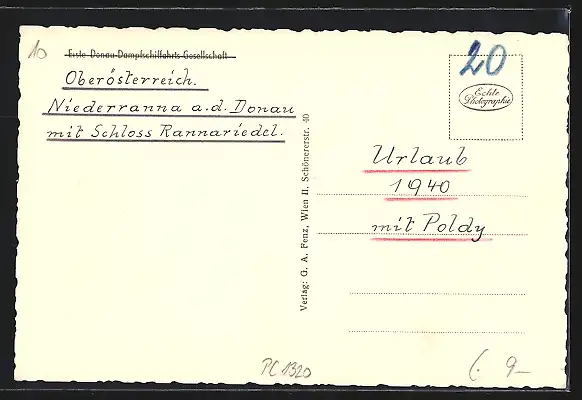 10
Erste Donau-Dampfschiffahrts-Gesellschaft
Oberösterreich.
Niederranna a.d. Donau
mit Schloss Rannariedel.
20
Echte
Photographie
Urlaub
1940
mit Poldy
Verlag: G. A. Fenz, Wien II. Schönererstr. 40
PC 1320
(. 9–